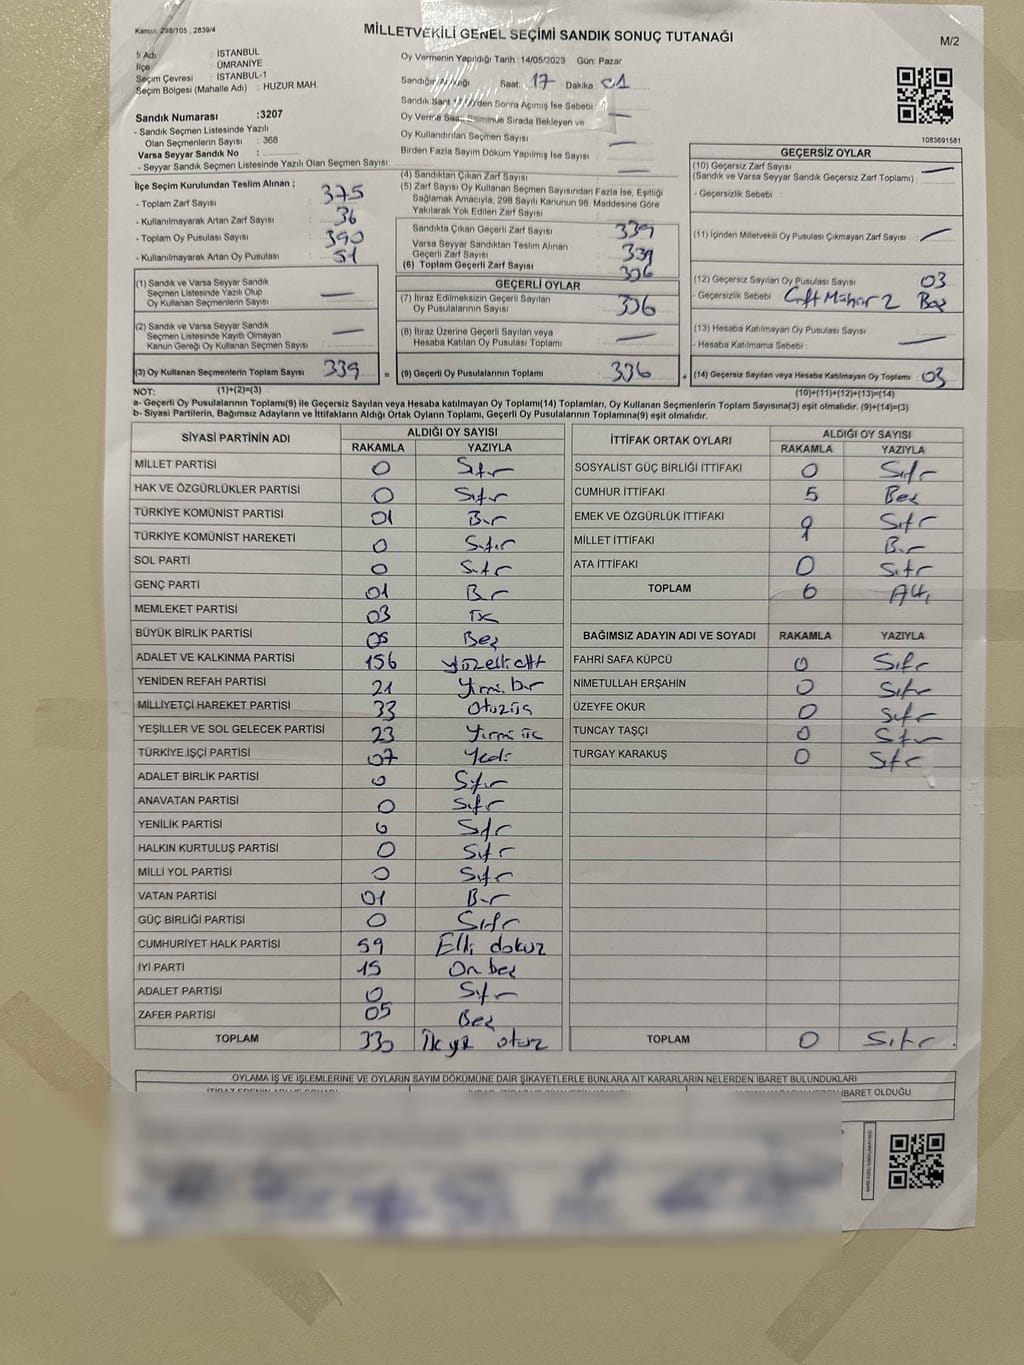 Kanun, 298/105 , 2839/4
MİLLETVEKİLİ GENEL SEÇİMİ SANDIK SONUÇ TUTANAĞI
M/2
İl Adı : İSTANBUL
İlçe : ÜMRANİYE
Seçim Çevresi : İSTANBUL-1
Seçim Bölgesi (Mahalle Adı) : HUZUR MAH.
Sandık Numarası :3207
- Sandık Seçmen Listesinde Yazılı
Olan Seçmenlerin Sayısı : 368
Varsa Seyyar Sandık No :
- Seyyar Sandık Seçmen Listesinde Yazılı Olan Seçmen Sayısı:
Oy Vermenin Yapıldığı Tarih :14/05/2023 Gün: Pazar
Sandığın Saat: 17 Dakika: 01
Sandık Saat Sonra Açımış İse Sebebi :
Oy Verme Saati Bitiminde Sırada Bekleyen ve
Oy Kullandırılan Seçmen Sayısı :
Birden Fazla Sayım Döküm Yapılmış İse Sayısı :
1083691581
İlçe Seçim Kurulundan Teslim Alınan ;
- Toplam Zarf Sayısı : 375
- Kullanılmayarak Artan Zarf Sayısı : 36
- Toplam Oy Pusulası Sayısı : 390
- Kullanılmayarak Artan Oy Pusulası : 51
(1) Sandık ve Varsa Seyyar Sandık
Seçmen Listesinde Yazılı Olup
Oy Kullanan Seçmenlerin Sayısı : —
(2) Sandık ve Varsa Seyyar Sandık
Seçmen Listesinde Kayıtlı Olmayan
Kanun Gereği Oy Kullanan Seçmen Sayısı : —
(3) Oy Kullanan Seçmenlerin Toplam Sayısı 339 =
(4) Sandıktan Çıkan Zarf Sayısı : —
(5) Zarf Sayısı Oy Kullanan Seçmen Sayısından Fazla İse, Eşitliği
Sağlamak Amacıyla, 298 Sayılı Kanunun 98. Maddesine Göre
Yakılarak Yok Edilen Zarf Sayısı :
Sandıkta Çıkan Geçerli Zarf Sayısı : 339
Varsa Seyyar Sandıktan Teslim Alınan
Geçerli Zarf Sayısı : 339
(6) Toplam Geçerli Zarf Sayısı : 336
GEÇERLİ OYLAR
(7) İtiraz Edilmeksizin Geçerli Sayılan
Oy Pusulasının Sayısı : 336
(8) İtiraz Üzerine Geçerli Sayılan veya
Hesaba Katılan Oy Pusulası Toplamı : —
(9) Geçerli Oy Pusulalarının Toplamı : 336 +
GEÇERSİZ OYLAR
(10) Geçersiz Zarf Sayısı
(Sandık ve Varsa Seyyar Sandık Geçersiz Zarf Toplamı) : —
- Geçersizlik Sebebi :
(11) İçinden Milletvekili Oy Pusulası Çıkmayan Zarf Sayısı : —
(12) Geçersiz Sayılan Oy Pusulası Sayısı : 03
- Geçersizlik Sebebi : Çift Mühür 2 Boş
(13) Hesaba Katılmayan Oy Pusulası Sayısı : —
- Hesaba Katılmama Sebebi :
(14) Geçersiz Sayılan veya Hesaba Katılmayan Oy Toplamı : 03
NOT: (1)+(2)=(3) (10)+(11)+(12)+(13)=(14)
a- Geçerli Oy Pusulalarının Toplamı(9) ile Geçersiz Sayılan veya Hesaba katılmayan Oy Toplamı(14) Toplamları, Oy Kullanan Seçmenlerin Toplam Sayısına(3) eşit olmalıdır. (9)+(14)=(3)
b- Siyasi Partilerin, Bağımsız Adayların ve İttifakların Aldığı Ortak Oyların Toplamı, Geçerli Oy Pusulalarının Toplamına(9) eşit olmalıdır.
SİYASİ PARTİNİN ADI ALDIĞI OY SAYISI
RAKAMLA YAZIYLA
MİLLET PARTİSİ 0 Sıfır
HAK VE ÖZGÜRLÜKLER PARTİSİ 0 Sıfır
TÜRKİYE KOMÜNİST PARTİSİ 01 Bir
TÜRKİYE KOMÜNİST HAREKETİ 0 Sıfır
SOL PARTİ 0 Sıfır
GENÇ PARTİ 01 Bir
MEMLEKET PARTİSİ 03 Üç
BÜYÜK BİRLİK PARTİSİ 05 Beş
ADALET VE KALKINMA PARTİSİ 156 Yüzelli altı
YENİDEN REFAH PARTİSİ 21 Yirmi bir
MİLLİYETÇİ HAREKET PARTİSİ 33 Otuzüç
YEŞİLLER VE SOL GELECEK PARTİSİ 23 Yirmi üç
TÜRKİYE İŞÇİ PARTİSİ 07 Yedi
ADALET BİRLİK PARTİSİ 0 Sıfır
ANAVATAN PARTİSİ 0 Sıfır
YENİLİK PARTİSİ 0 Sıfır
HALKIN KURTULUŞ PARTİSİ 0 Sıfır
MİLLİ YOL PARTİSİ 0 Sıfır
VATAN PARTİSİ 01 Bir
GÜÇ BİRLİĞİ PARTİSİ 0 Sıfır
CUMHURİYET HALK PARTİSİ 59 Elli dokuz
İYİ PARTİ 15 On beş
ADALET PARTİSİ 0 Sıfır
ZAFER PARTİSİ 05 Beş
TOPLAM 330 Üç yüz otuz
İTTİFAK ORTAK OYLARI ALDIĞI OY SAYISI
RAKAMLA YAZIYLA
SOSYALİST GÜÇ BİRLİĞİ İTTİFAKI 0 Sıfır
CUMHUR İTTİFAKI 5 Beş
EMEK VE ÖZGÜRLÜK İTTİFAKI 0 Sıfır
MİLLET İTTİFAKI 1 Bir
ATA İTTİFAKI 0 Sıfır
TOPLAM 6 Altı
BAĞIMSIZ ADAYIN ADI VE SOYADI RAKAMLA YAZIYLA
FAHRİ SAFA KÜPCÜ 0 Sıfır
NİMETULLAH ERŞAHİN 0 Sıfır
ÜZEYFE OKUR 0 Sıfır
TUNCAY TAŞÇI 0 Sıfır
TURGAY KARAKUŞ 0 Sıfır
TOPLAM 0 Sıfır
OYLAMA İŞ VE İŞLEMLERİNE VE OYLARIN SAYIM DÖKÜMÜNE DAİR ŞİKAYETLERLE BUNLARA AİT KARARLARIN NELERDEN İBARET BULUNDUKLARI
İBARET OLDUĞU